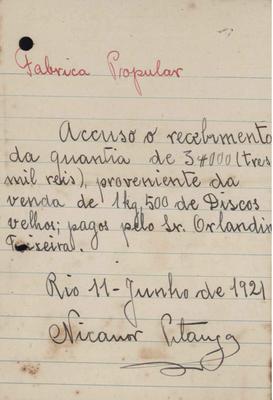 Fabrica Popular
Accuso o recebimento
da quantia de 3#000 (tres
mil reis), proveniente da
venda de 1kg,500 de Discos
velhos; pagos pelo Sr. Orlandin
Teixeira.
Rio 11-Junho de 1921
Nicanor Pitanga